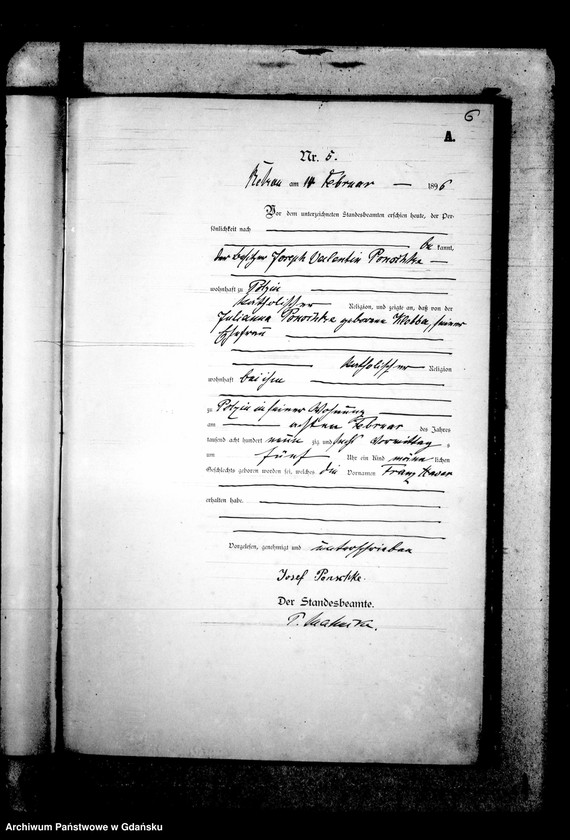 6
A.
Nr. 5.
am 14 Februar 1896
Vor dem unterzeichneten Standesbeamten erschien heute, der Per-
sönlichkeit nach
be kannt,
der Besitzer Joseph Valentin Ponschke
wohnhaft zu Polzin
katholischer Religion, und zeigte an, daß von der
Julianna Ponschke geborene Klebba, seiner
Ehefrau
katholischer Religion
wohnhaft bei ihm
zu Polzin in seiner Wohnung
am achten Februar des Jahres
tausend acht hundert neun zig und sechs Vormittags
um fünf Uhr ein Kind männlichen
Geschlechts geboren worden sei, welches die Vornamen Franz
erhalten habe.
Vorgelesen, genehmigt und unterschrieben
Josef Ponschke.
Der Standesbeamte.
Archiwum Państwowe w Gdańsku